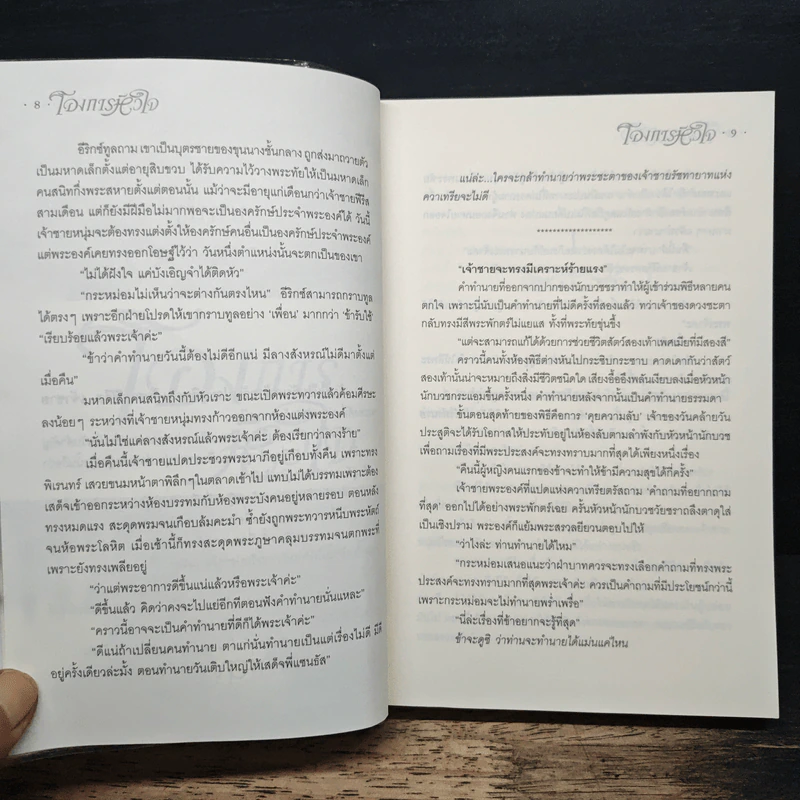 · 8 · โองการหัวใจ
อีริกซ์ทูลถาม เขาเป็นบุตรชายของขุนนางชั้นกลาง ถูกส่งมาถวายตัว
เป็นมหาดเล็กตั้งแต่อายุสิบขวบ ได้รับความไว้วางพระทัยให้เป็นมหาดเล็ก
คนสนิทกึ่งพระสหายตั้งแต่ตอนนั้น แม้ว่าจะมีอายุแก่เดือนกว่าเจ้าชายฟีริส
สามเดือน แต่ก็ยังมีฝีมือไม่มากพอจะเป็นองครักษ์ประจำพระองค์ได้ วันนี้
เจ้าชายหนุ่มจะต้องทรงแต่งตั้งให้องครักษ์คนอื่นเป็นองครักษ์ประจำพระองค์
แต่พระองค์เคยทรงออกโอษฐ์ไว้ว่า วันหนึ่งตำแหน่งนั้นจะตกเป็นของเขา
"ไม่ได้ฝังใจ แค่บังเอิญจำได้ติดหัว"
"กระหม่อมไม่เห็นว่าจะต่างกันตรงไหน" อีริกซ์สามารถกราบทูล
ได้ตรงๆ เพราะอีกฝ่ายโปรดให้เขากราบทูลอย่าง 'เพื่อน' มากกว่า 'ข้ารับใช้'
"เรียบร้อยแล้วพระเจ้าค่ะ"
"ข้าว่าคำทำนายวันนี้ต้องไม่ดีอีกแน่ มีลางสังหรณ์ไม่ดีมาตั้งแต่
เมื่อคืน"
มหาดเล็กคนสนิทถึงกับหัวเราะ ขณะเปิดพระทวารแล้วค้อมศีรษะ
ลงน้อยๆ ระหว่างที่เจ้าชายหนุ่มทรงก้าวออกจากห้องแต่งพระองค์
"นั่นไม่ใช่แค่ลางสังหรณ์แล้วพระเจ้าค่ะ ต้องเรียกว่าลางร้าย"
เมื่อคืนนี้เจ้าชายแปดประชวรพระนาภีอยู่เกือบทั้งคืน เพราะทรง
พิเรนทร์ เสวยขนมหน้าตาพิลึกๆ ในตลาดเข้าไป แทบไม่ได้บรรทมเพราะต้อง
เสด็จเข้าออกระหว่างห้องบรรทมกับห้องพระบังคนอยู่หลายรอบ ตอนหลัง
ทรงหมดแรง สะดุดพรมจนเกือบล้มคะมำ ซ้ำยังถูกพระทวารหนีบพระหัตถ์
จนห้อพระโลหิต เมื่อเช้านี้ก็ทรงสะดุดพระภูษาคลุมบรรทมจนตกพระที่
เพราะยังทรงเพลียอยู่
"ว่าแต่พระอาการดีขึ้นแน่แล้วหรือพระเจ้าค่ะ"
"ดีขึ้นแล้ว คิดว่าคงจะไปแย่อีกทีตอนฟังคำทำนายนั่นแหละ"
"คราวนี้อาจจะเป็นคำทำนายที่ดีก็ได้พระเจ้าค่ะ"
"ดีแน่ถ้าเปลี่ยนคนทำนาย ตาแก่นั่นทำนายเป็นแต่เรื่องไม่ดี มีดี
อยู่ครั้งเดียวล่ะมั้ง ตอนทำนายวันเติบใหญ่ให้เสด็จพี่แซนธัส"
โองการหัวใจ · 9 ·
แน่ล่ะ...ใครจะกล้าทำนายว่าพระชะตาของเจ้าชายรัชทายาทแห่ง
ควาเทรียจะไม่ดี
*******************
"เจ้าชายจะทรงมีเคราะห์ร้ายแรง"
คำทำนายที่ออกจากปากของนักบวชชราทำให้ผู้เข้าร่วมพิธีหลายคน
ตกใจ เพราะนี่นับเป็นคำทำนายที่ไม่ดีครั้งที่สองแล้ว ทว่าเจ้าของดวงชะตา
กลับทรงมีสีพระพักตร์ไม่แยแส ทั้งที่พระทัยขุ่นขึ้ง
"แต่จะสามารถแก้ได้ด้วยการช่วยชีวิตสัตว์สองเท้าเพศเมียที่มีสองสี"
คราวนี้คนทั้งห้องพิธีต่างหันไปกระซิบกระซาบ คาดเดากันว่าสัตว์
สองเท้านั้นน่าจะหมายถึงสิ่งมีชีวิตชนิดใด เสียงอื้ออึงพลันเงียบลงเมื่อหัวหน้า
นักบวชกระแอมขึ้นครั้งหนึ่ง คำทำนายหลังจากนั้นเป็นคำทำนายธรรมดา
ขั้นตอนสุดท้ายของพิธีคือการ 'คุยความลับ' เจ้าของวันคล้ายวัน
ประสูติจะได้รับโอกาสให้ประทับอยู่ในห้องลับตามลำพังกับหัวหน้านักบวช
เพื่อถามเรื่องที่มีพระประสงค์จะทรงทราบมากที่สุดได้เพียงหนึ่งเรื่อง
"คืนนี้ผู้หญิงคนแรกของข้าจะทำให้ข้ามีความสุขได้กี่ครั้ง"
เจ้าชายพระองค์ที่แปดแห่งควาเทรียตรัสถาม 'คำถามที่อยากถาม
ที่สุด' ออกไปได้อย่างพระพักตร์เฉย ครั้นหัวหน้านักบวชวัยชราถลึงตาดุใส่
เป็นเชิงปราม พระองค์ก็แย้มพระสรวลยียวนตอบไปให้
"ว่าไงล่ะ ท่านทำนายได้ไหม"
"กระหม่อมเสนอแนะว่าฝ่าบาทควรจะทรงเลือกคำถามที่ทรงพระ
ประสงค์จะทรงทราบมากที่สุดพระเจ้าค่ะ ควรเป็นคำถามที่มีประโยชน์กว่านี้
เพราะกระหม่อมจะไม่ทำนายพร่ำเพรื่อ"
"นี่ล่ะเรื่องที่ข้าอยากจะรู้ที่สุด"
ข้าจะดูซิ ว่าท่านจะทำนายได้แม่นแค่ไหน